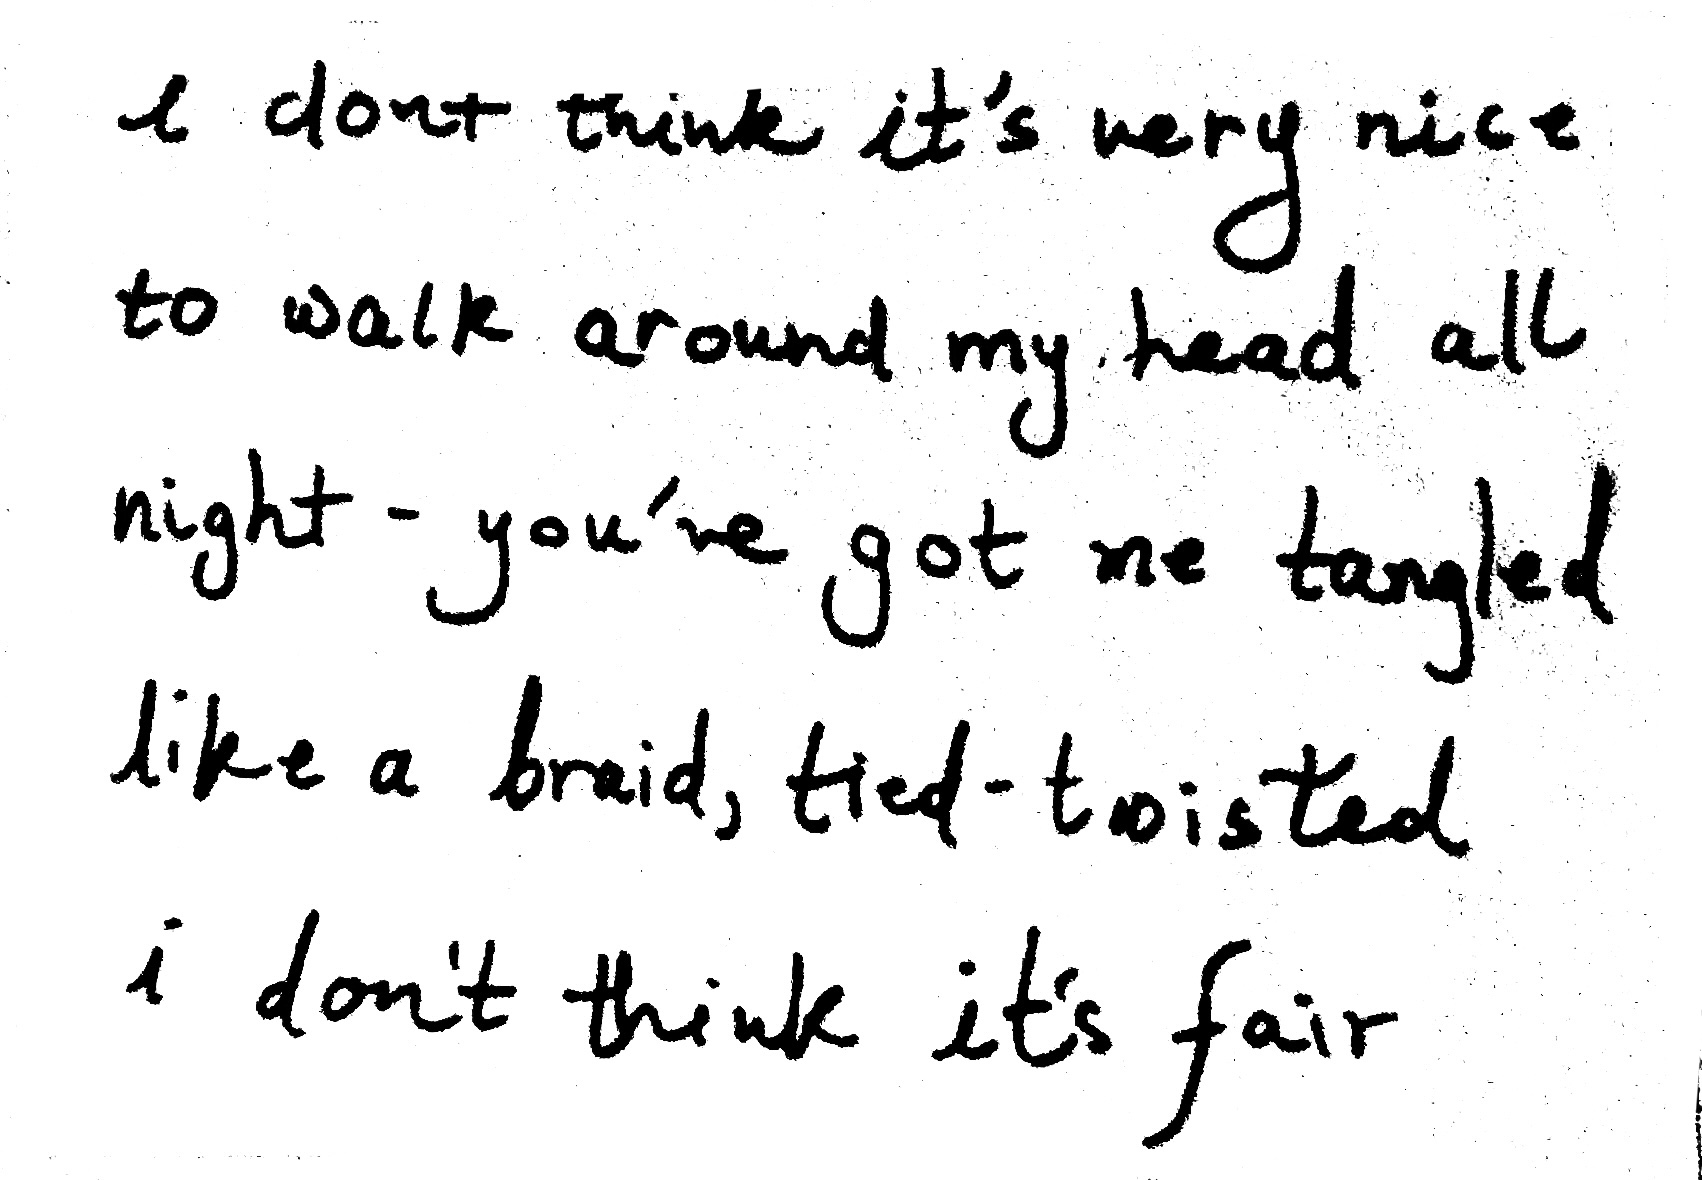 i dont think it's very nice
to walk around my head all
night - you've got me tangled
like a braid, tied-twisted
i don't think it's fair